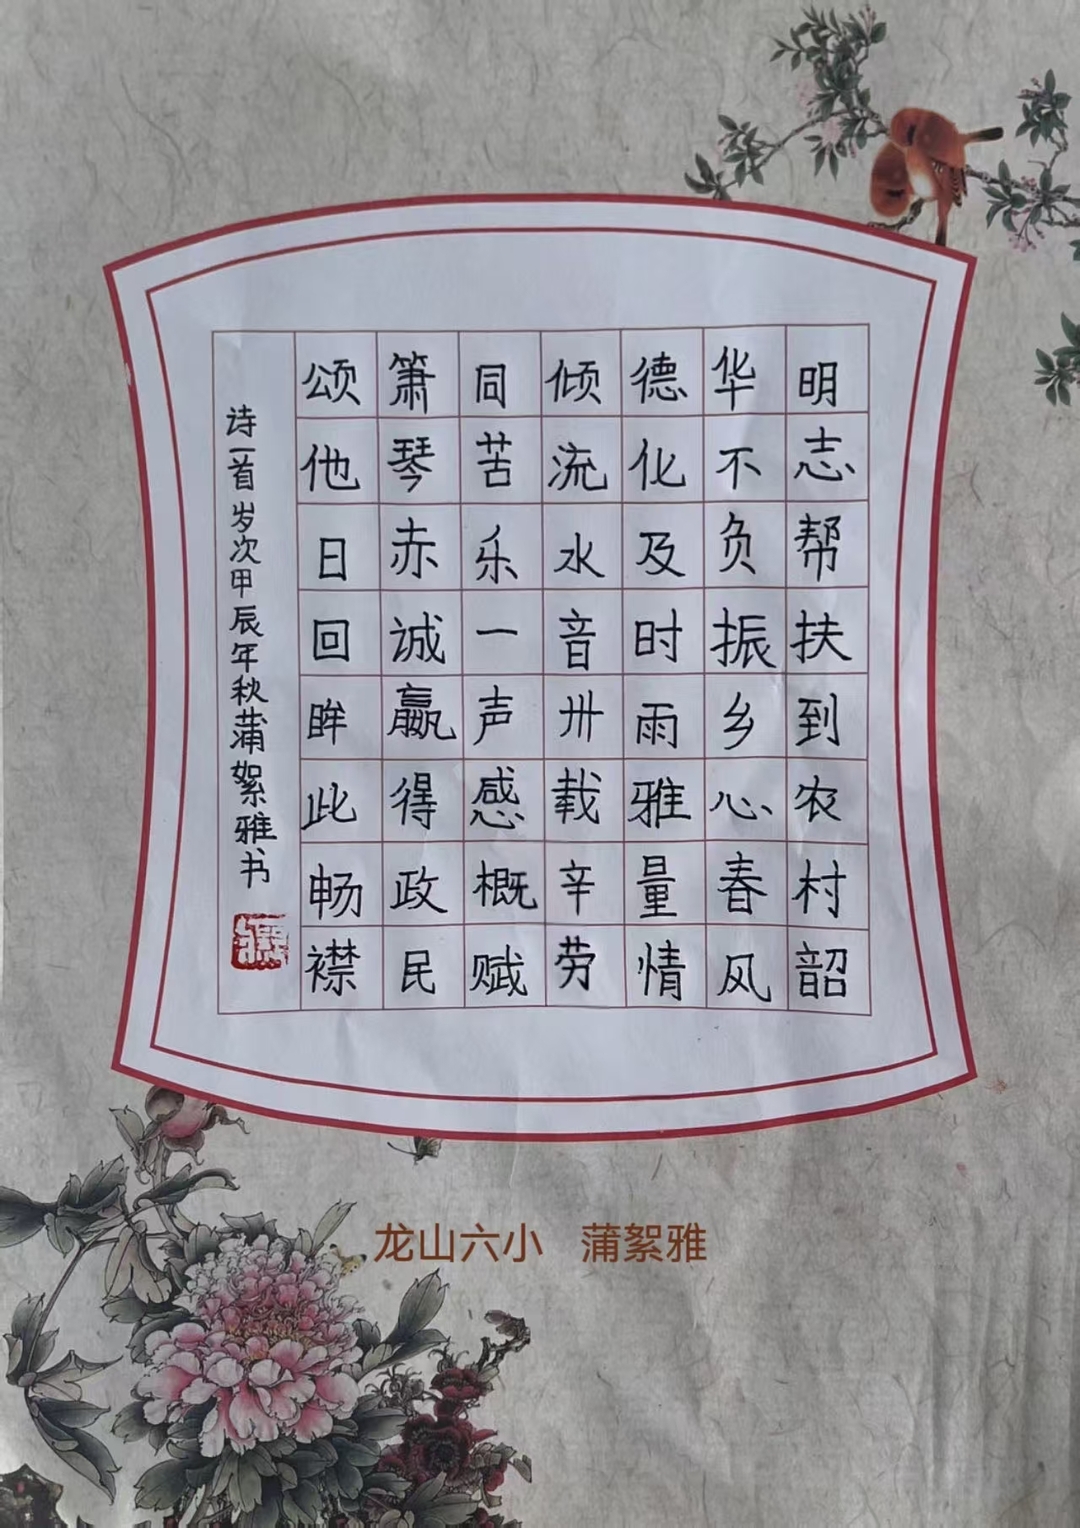 明志帮扶到农村韶
华不负振乡心春风
德化及时雨雅量情
倾流水音卅载辛劳
同苦乐一声感概赋
箫琴赤诚赢得政民
颂他日回眸此畅襟
诗一首岁次甲辰年秋蒲絮雅书
龙山六小 蒲絮雅